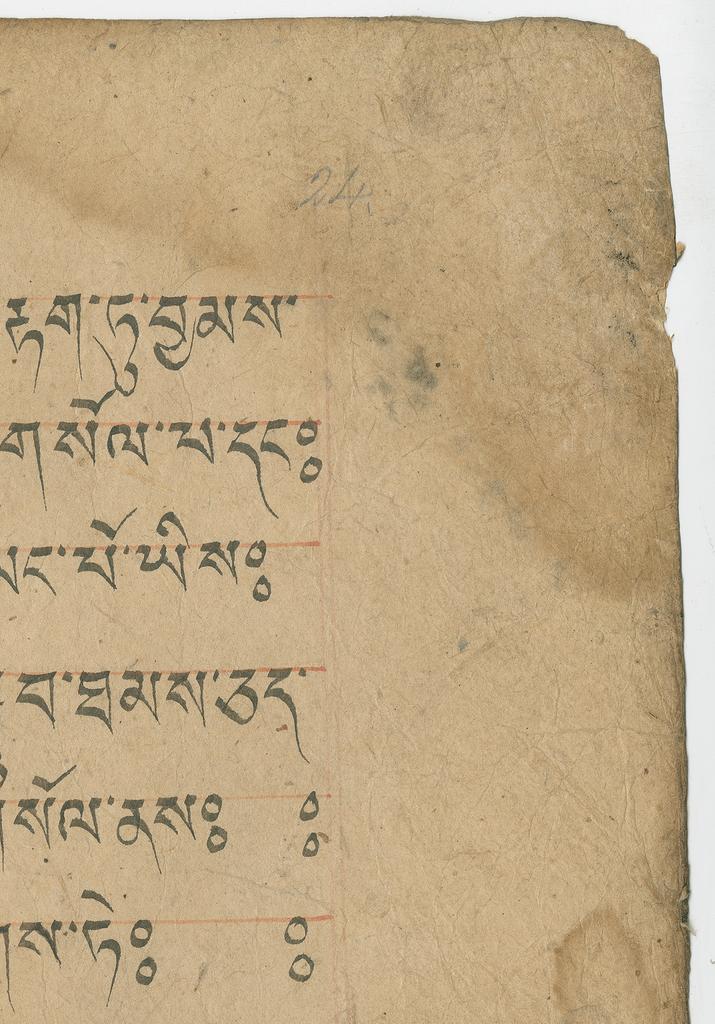 24.
རྟག་ཏུ་བྱམས་
གསོལ་པ་དང༔
པོ་ཡིས༔
བ་ཐམས་ཅད་
སོལ་ནས༔ ༔
ས་ཏེ༔ ༔